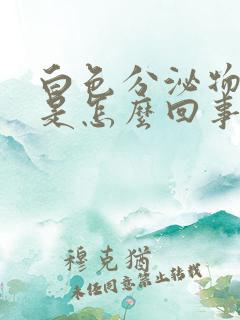 白色分泌物
是怎麼回事
穆克猶
未经同意禁止转载